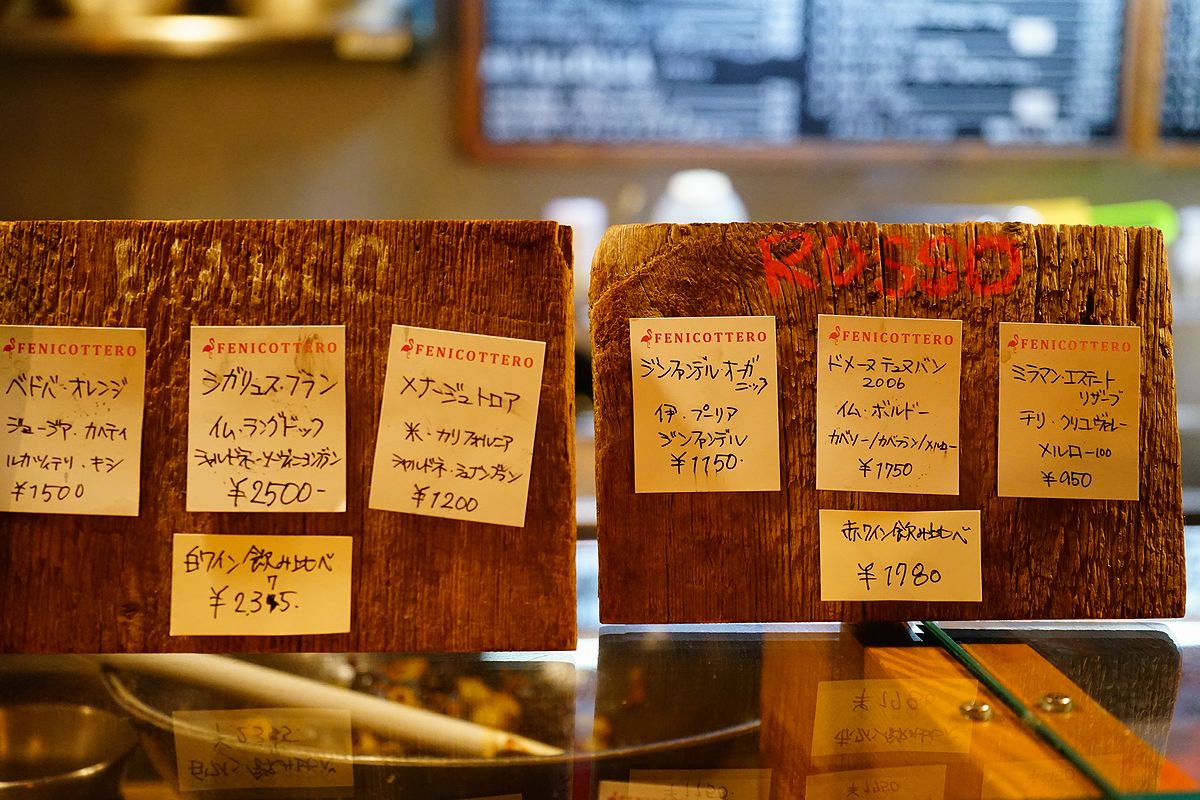 FENICOTTERO
ベドバ・オレンジ
ジョージア・カヘティ
ルカツィテリ・キシ
¥1500
FENICOTTERO
シガリュス・ブラン
イム・ラングドック
シャルドネ・ソーヴィニヨンブラン
¥2500-
FENICOTTERO
メナージュトロア
米・カリフォルニア
¥1200
白ワイン飲み比べ
ROSSO
FENICOTTERO
ジンファンデル・オーガ
ニック
伊・プーリア
ジンファンデル
¥1150.
FENICOTTERO
ドメーヌテュヌバン
2006
イム・ボルドー
カベソー/カベフラン/メルロー
¥1750
FENICOTTERO
ミラマン・エステート
リザーブ
チリ・
メルロー100
¥950
赤ワイン飲み比べ
¥1780